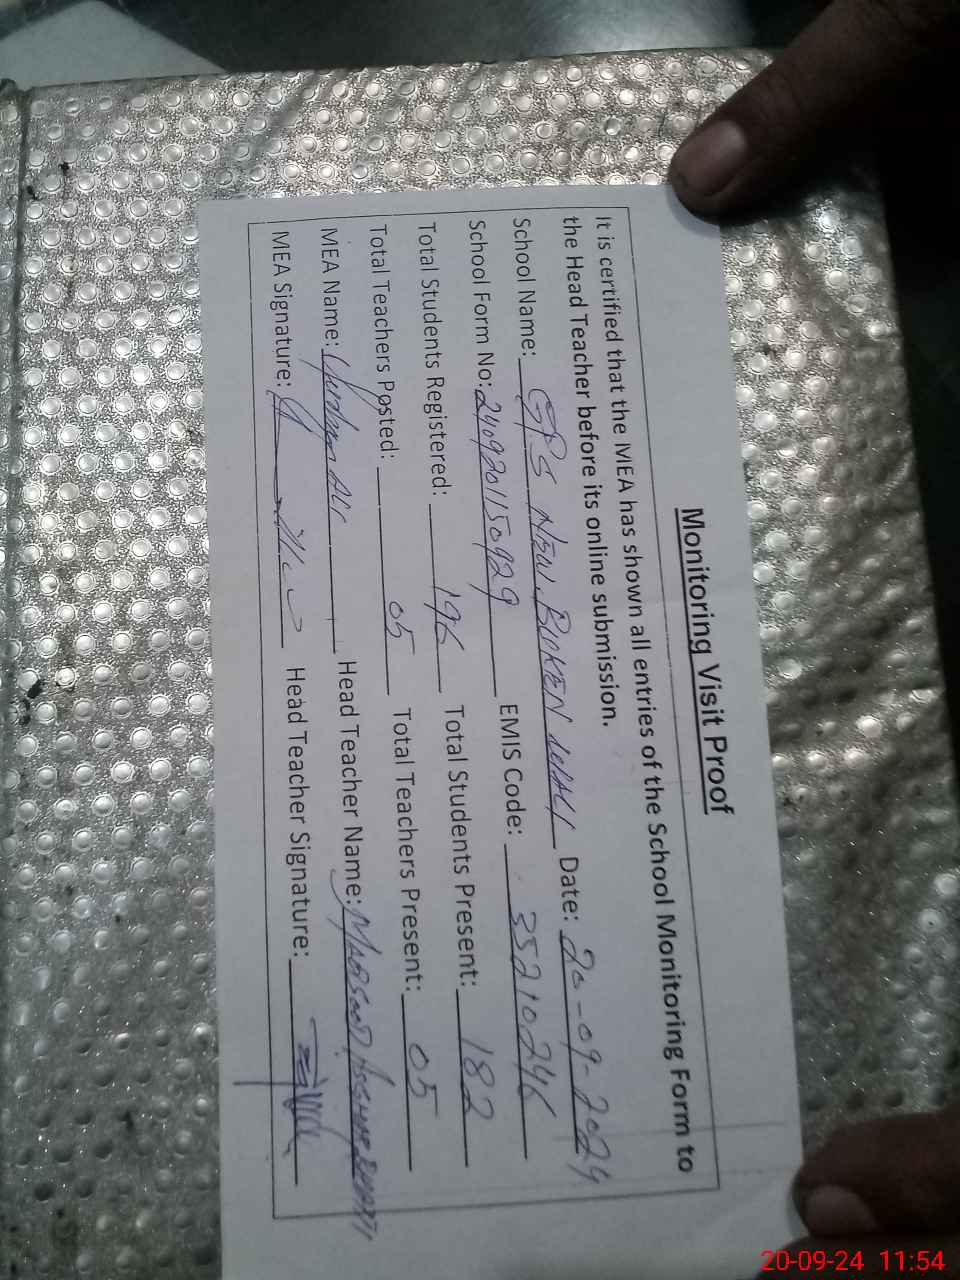 Monitoring Visit Proof
It is certified that the MEA has shown all entries of the School Monitoring Form to
the Head Teacher before its online submission.
School Name: GPS NEW BUKEN Date: 20-09-2024
School Form No: 2409201150929 EMIS Code: 35210246
Total Students Registered: 196 Total Students Present: 182
Total Teachers Posted: 05 Total Teachers Present: 05
MEA Name: Head Teacher Name: MAQSOOD
MEA Signature: Head Teacher Signature:
20-09-24 11:54